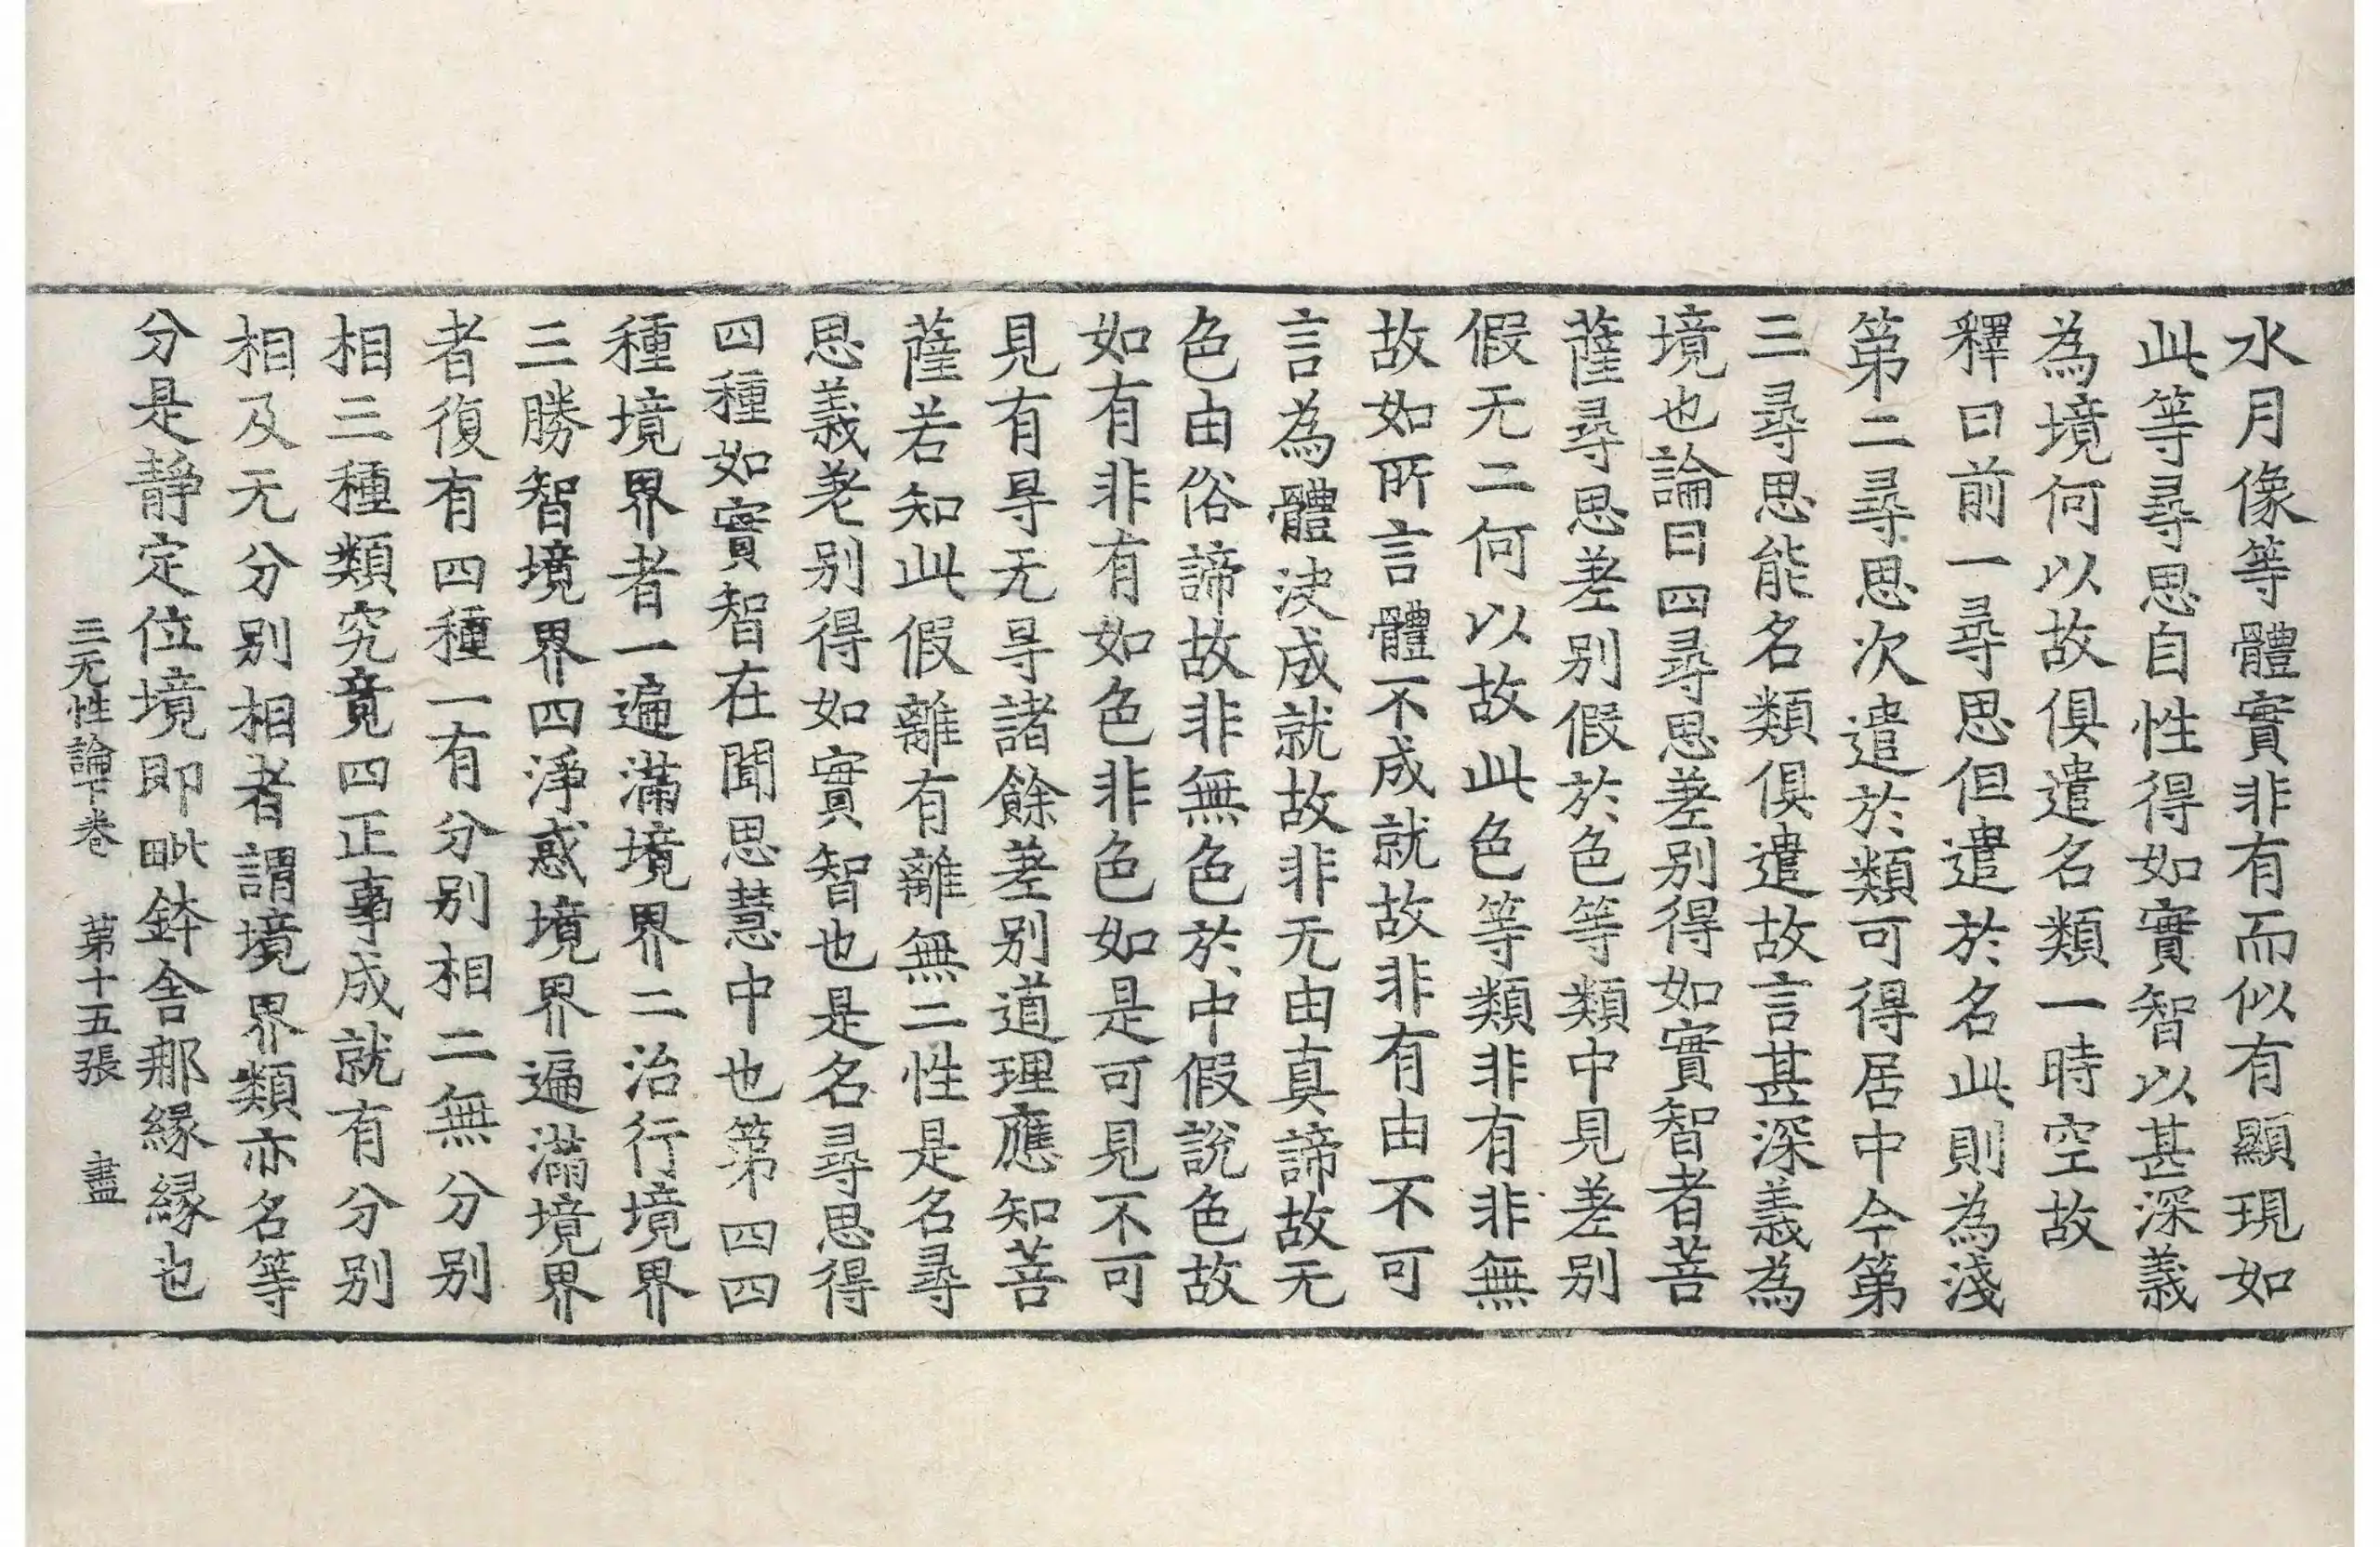 水月像等體實非有而似有顯現如
此等尋思自性得如實智以甚深義
為境何以故俱遣名類一時空故
釋曰前一尋思但遣於名此則為淺
第二尋思次遣於類可得居中今第
三尋思能名類俱遣故言甚深義為
境也論曰四尋思差别得如實智者菩
薩尋思差别假於色等類中見差别
假无二何以故此色等類非有非無
故如所言體不成就故非有由不可
言為體決成就故非无由真諦故无
色由俗諦故非無色於中假說色故
如有非有如色非色如是可見不可
見有㝵无㝵諸餘差别道理應知菩
薩若知此假離有離無二性是名尋
思義差别得如實智也是名尋思得
四種如實智在聞思慧中也第四四
種境界者一遍滿境界二治行境界
三勝智境界四淨惑境界遍滿境界
者復有四種一有分别相二無分别
相三種類究竟四正事成就有分别
相及无分别相者謂境界類亦名等
分是静定位境即毗鉢舍那緣緣也
三无性論下卷　第十五張　盡